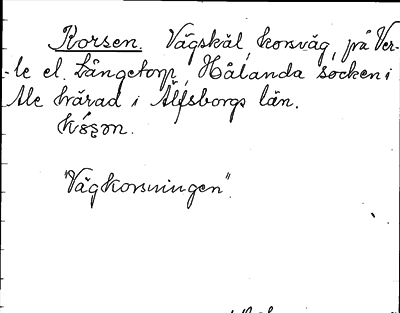 Korsen. Vägskäl, korsväg, på Ver-
le el. Långetorp, Hålanda socken i
Ale härad i Älfsborgs län.
"Vägkorsningen".